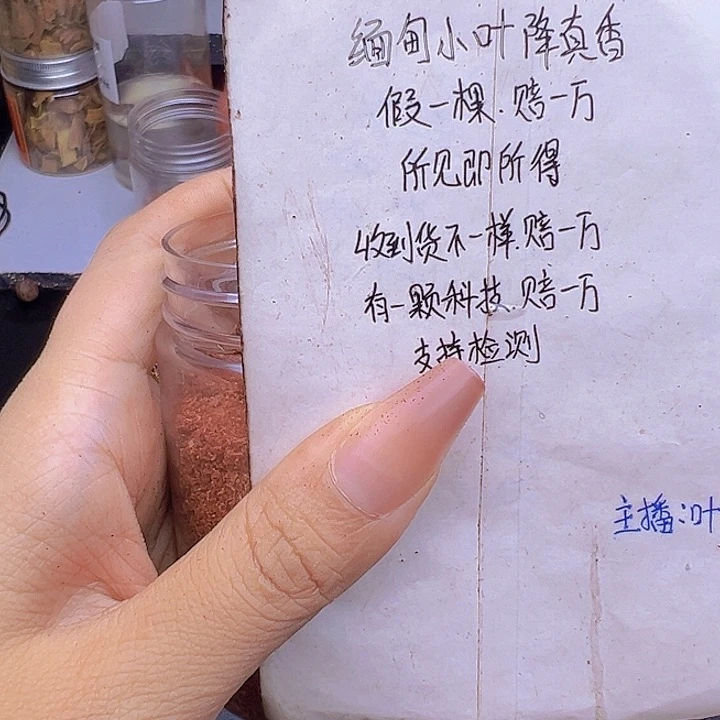 缅甸小叶降真香
假一棵.赔一万
所见即所得
收到货不一样.赔一万
有一颗科技.赔一万
支持检测
主播:叶